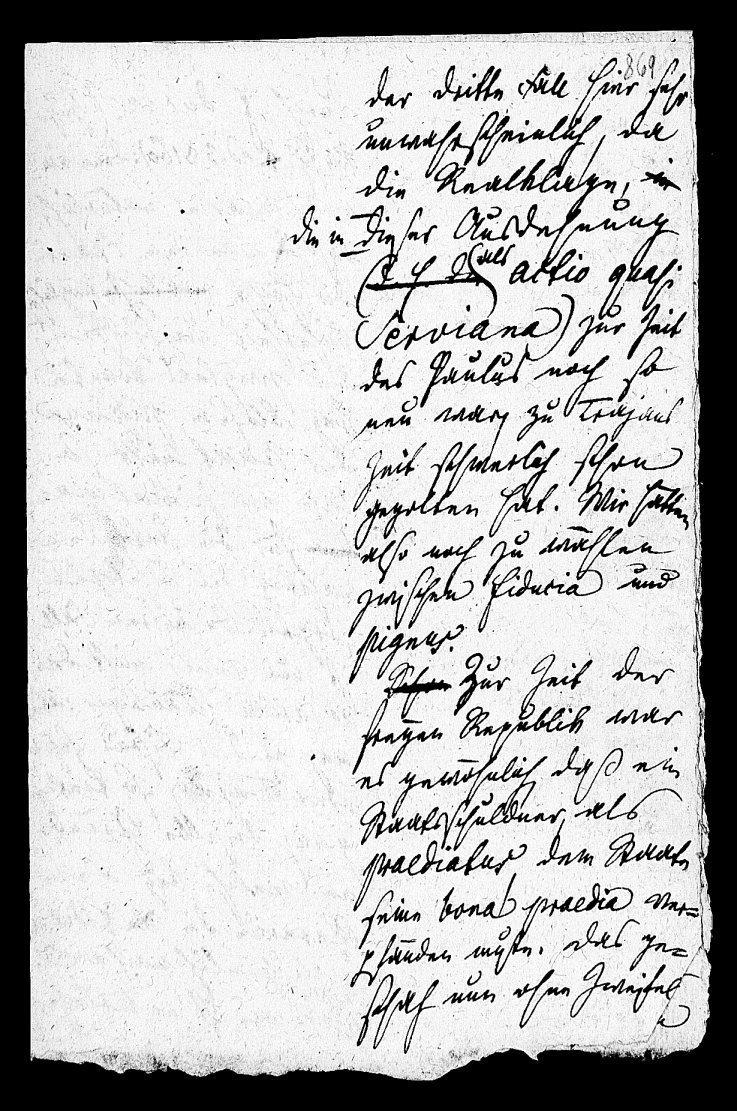 869
der dritte Fall hier sehr
unwahrscheinlich, da
die Realklage,
die in dieser Ausdehnung
(als actio quasi
Serviana) zur Zeit
des Paulus noch so
neu war, zu Trajans
Zeit schwerlich schon
gegolten hat. Wir hätten
also noch zu wählen
zwischen fiducia und
pignus.
Schon Zur Zeit der
freyen Republik war
es gewöhnlich daß ein
Staatsschuldner, als
praediatus, dem Staate
seine bona praedia ver=
pfänden mußte. Das ge=
schah nun ohne Zweifel